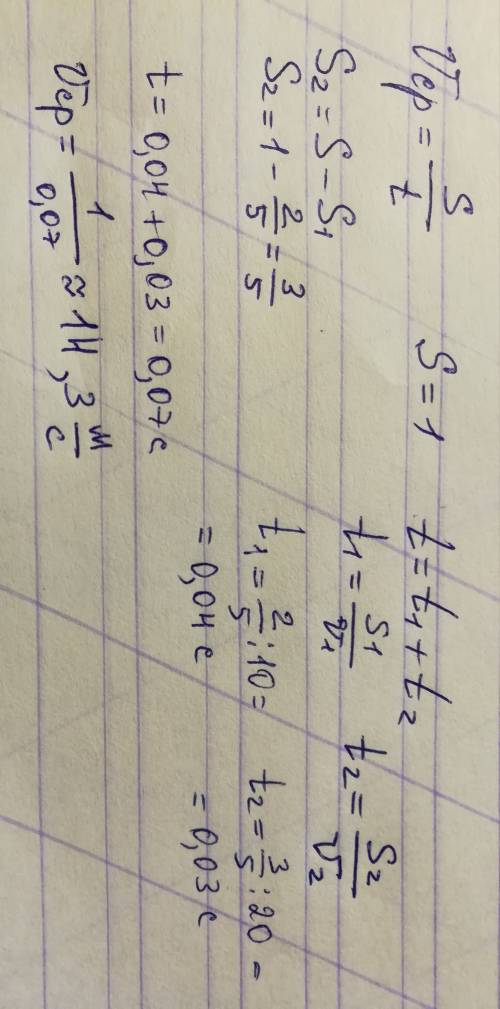 Vср = S/t S = 1 t = t₁ + t₂
S₂ = S − S₁ t₁ = S₁/V₁ t₂ = S₂/V₂
S₂ = 1 − 2/5 = 3/5 t₁ = 2/5 : 10 = t₂ = 3/5 : 20 =
= 0,04 с = 0,03 с
t = 0,04 + 0,03 = 0,07 с
Vср = 1/0,07 ≈ 14,3 м/с